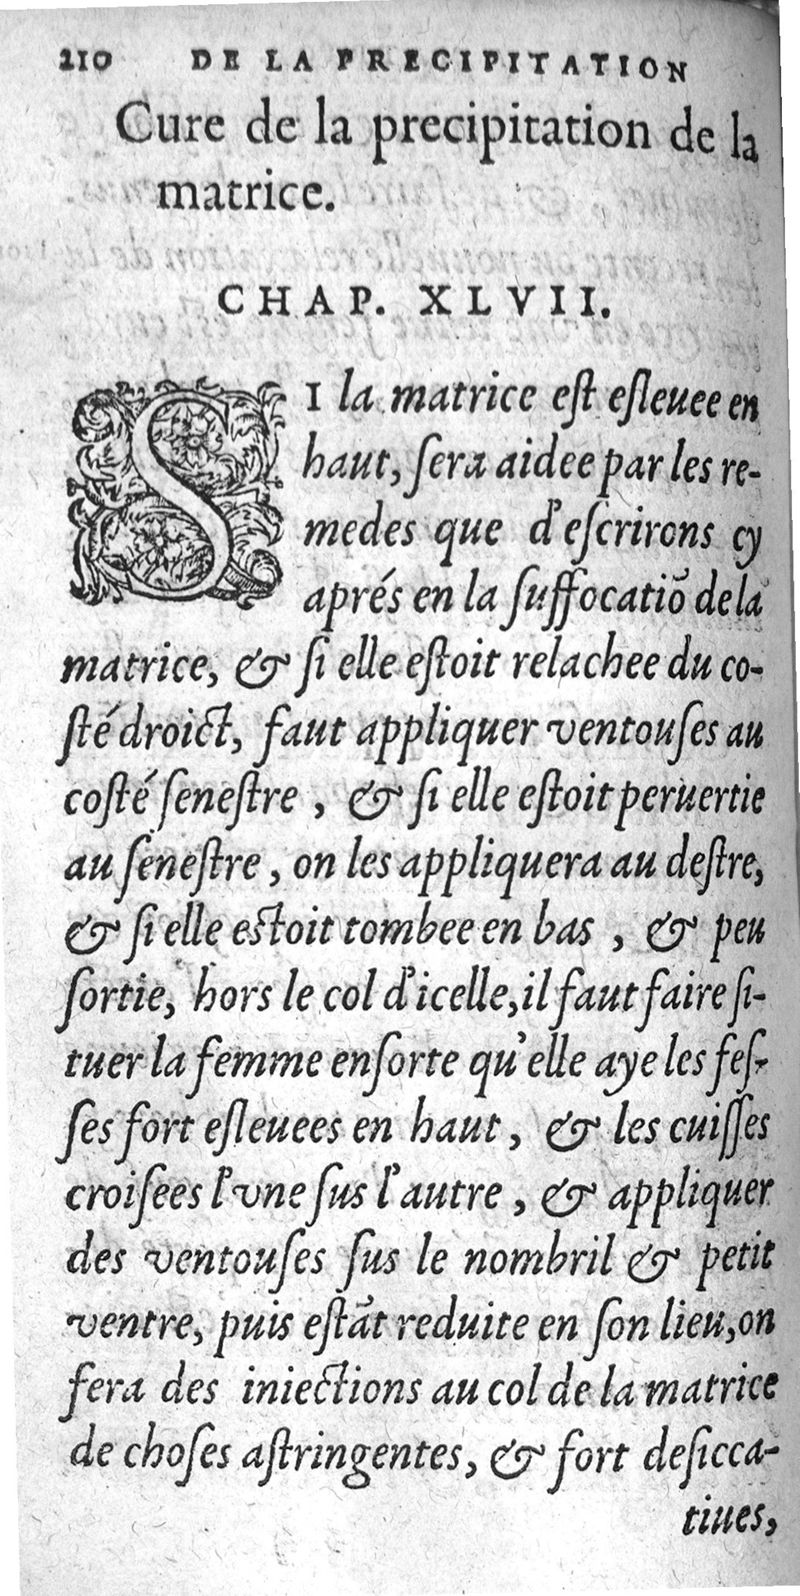 210 DE LA PRECIPITATION
Cure de la precipitation de la
matrice.
CHAP. XLVII.
SI la matrice eſt eſleuee en
haut, ſera aidee par les re-
medes que d'eſcrirons cy
aprés en la ſuffocatiō de la
matrice, & ſi elle eſtoit relachee du co-
ſté droict, faut appliquer ventouſes au
coſté ſeneſtre, & ſi elle eſtoit peruertie
au ſeneſtre, on les appliquera au deſtre,
& ſi elle eſtoit tombee en bas, & peu
ſortie, hors le col d'icelle, il faut faire ſi-
tuer la femme enſorte qu'elle aye les feſ-
ſes fort eſleuees en haut, & les cuiſſes
croiſees l'vne ſus l'autre, & appliquer
des ventouſes ſus le nombril & petit
ventre, puis eſtāt reduite en ſon lieu, on
fera des iniections au col de la matrice
de choſes aſtringentes, & fort deſicca-
tiues,